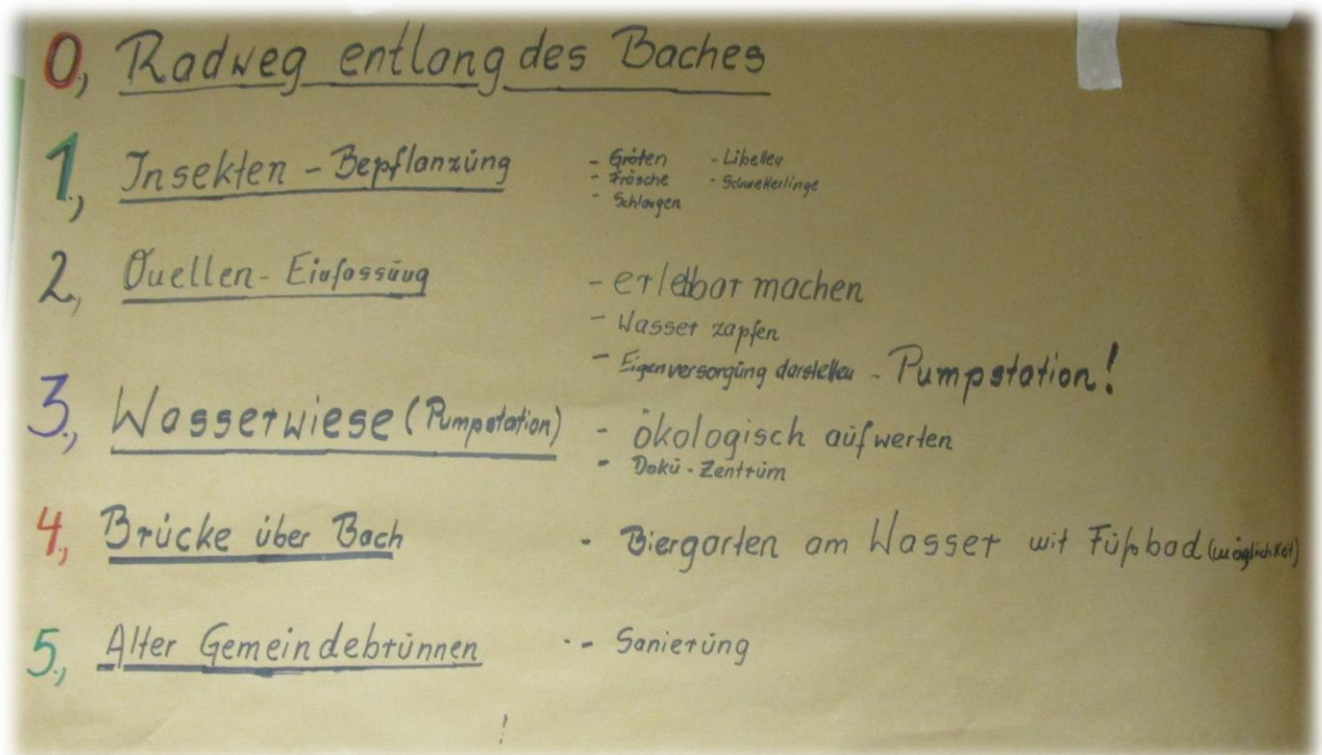 0, Radweg entlang des Baches
1, Insekten - Bepflanzung - Gröten - Libellen
- Frösche - Schmetterlinge
- Schlangen
2, Quellen - Einfassung - erlebbar machen
- Wasser zapfen
- Eigenversorgung darstellen - Pumpstation!
3, Wasserwiese (Pumpstation) - ökologisch aufwerten
- Doku - Zentrum
4, Brücke über Bach - Biergarten am Wasser mit Fußbad (möglichkeit)
5, Alter Gemeindebrunnen - Sanierung